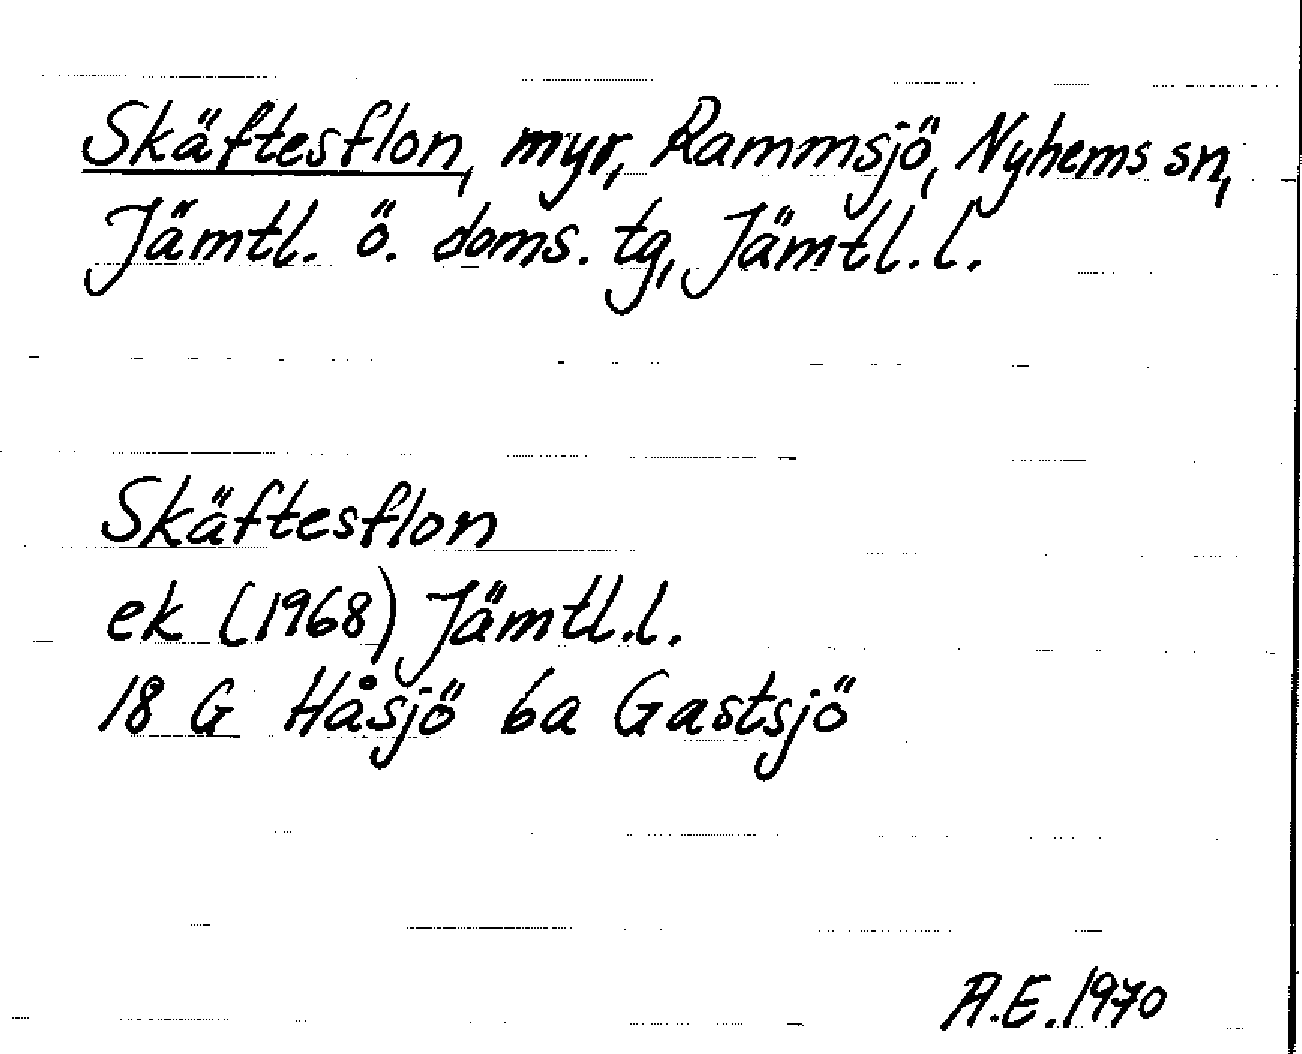 Skäftesflon, myr, Rammsjö, Nyhems sn,
Jämtl. ö. doms. tg, Jämtl. l.
Skäftesflon
ek (1968) Jämtl. l.
18 G Håsjö 6a Gastsjö
A.E. 1970